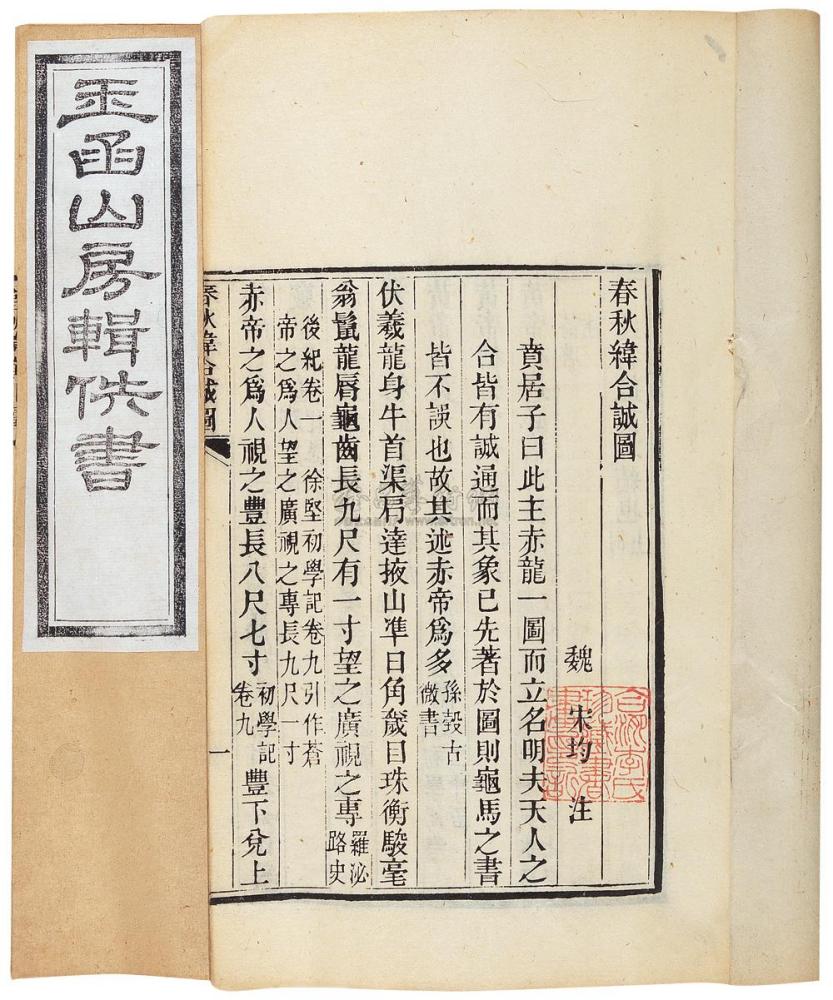 玉函山房輯佚書
春秋緯合誠圖
魏 宋均 注
賁居子曰此主赤龍一圖而立名明夫天人之
合皆有誠通而其象已先著於圖則龜馬之書
皆不誤也故其述赤帝爲多孫瑴古微書
伏羲龍身牛首渠肩達掖山準日角奯目珠衡駿毫
翁鬛龍脣龜齒長九尺有一寸望之廣視之專羅泌路史
後紀卷一 徐堅初學記卷九引作蒼
帝之爲人望之廣視之專長九尺一寸
赤帝之爲人視之豐長八尺七寸初學記卷九豐下兌上
春秋緯合誠圖
一